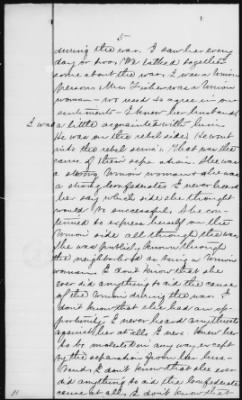 5
during the war. I saw her every
day or two. We talked together
some about the war. I was a Union
person. Mrs Fisher was a Union
woman - we used to agree in our
sentiments - I knew her husband,
I was a little acquainted with him.
He was on the rebel side. He went
into the rebel service. That was the
cause of their separation. She was
a strong Union woman & he was
a strong Confederate. I never heard
her say which side she thought
would be successful. She con-
tinued to express herself on the
Union side all through the war.
She was publicly known through
the neighborhood as being a Union
woman. I don't know that she
ever did anything to aid the cause
of the Union during the war. I
don't know that she had an op-
portunity. I never heard anything
against her at all. I never knew her
to be molested in any way except
by the separation from her hus-
band. I don't know that she ever
did anything to aid the Confederate
cause at all. I don't know that